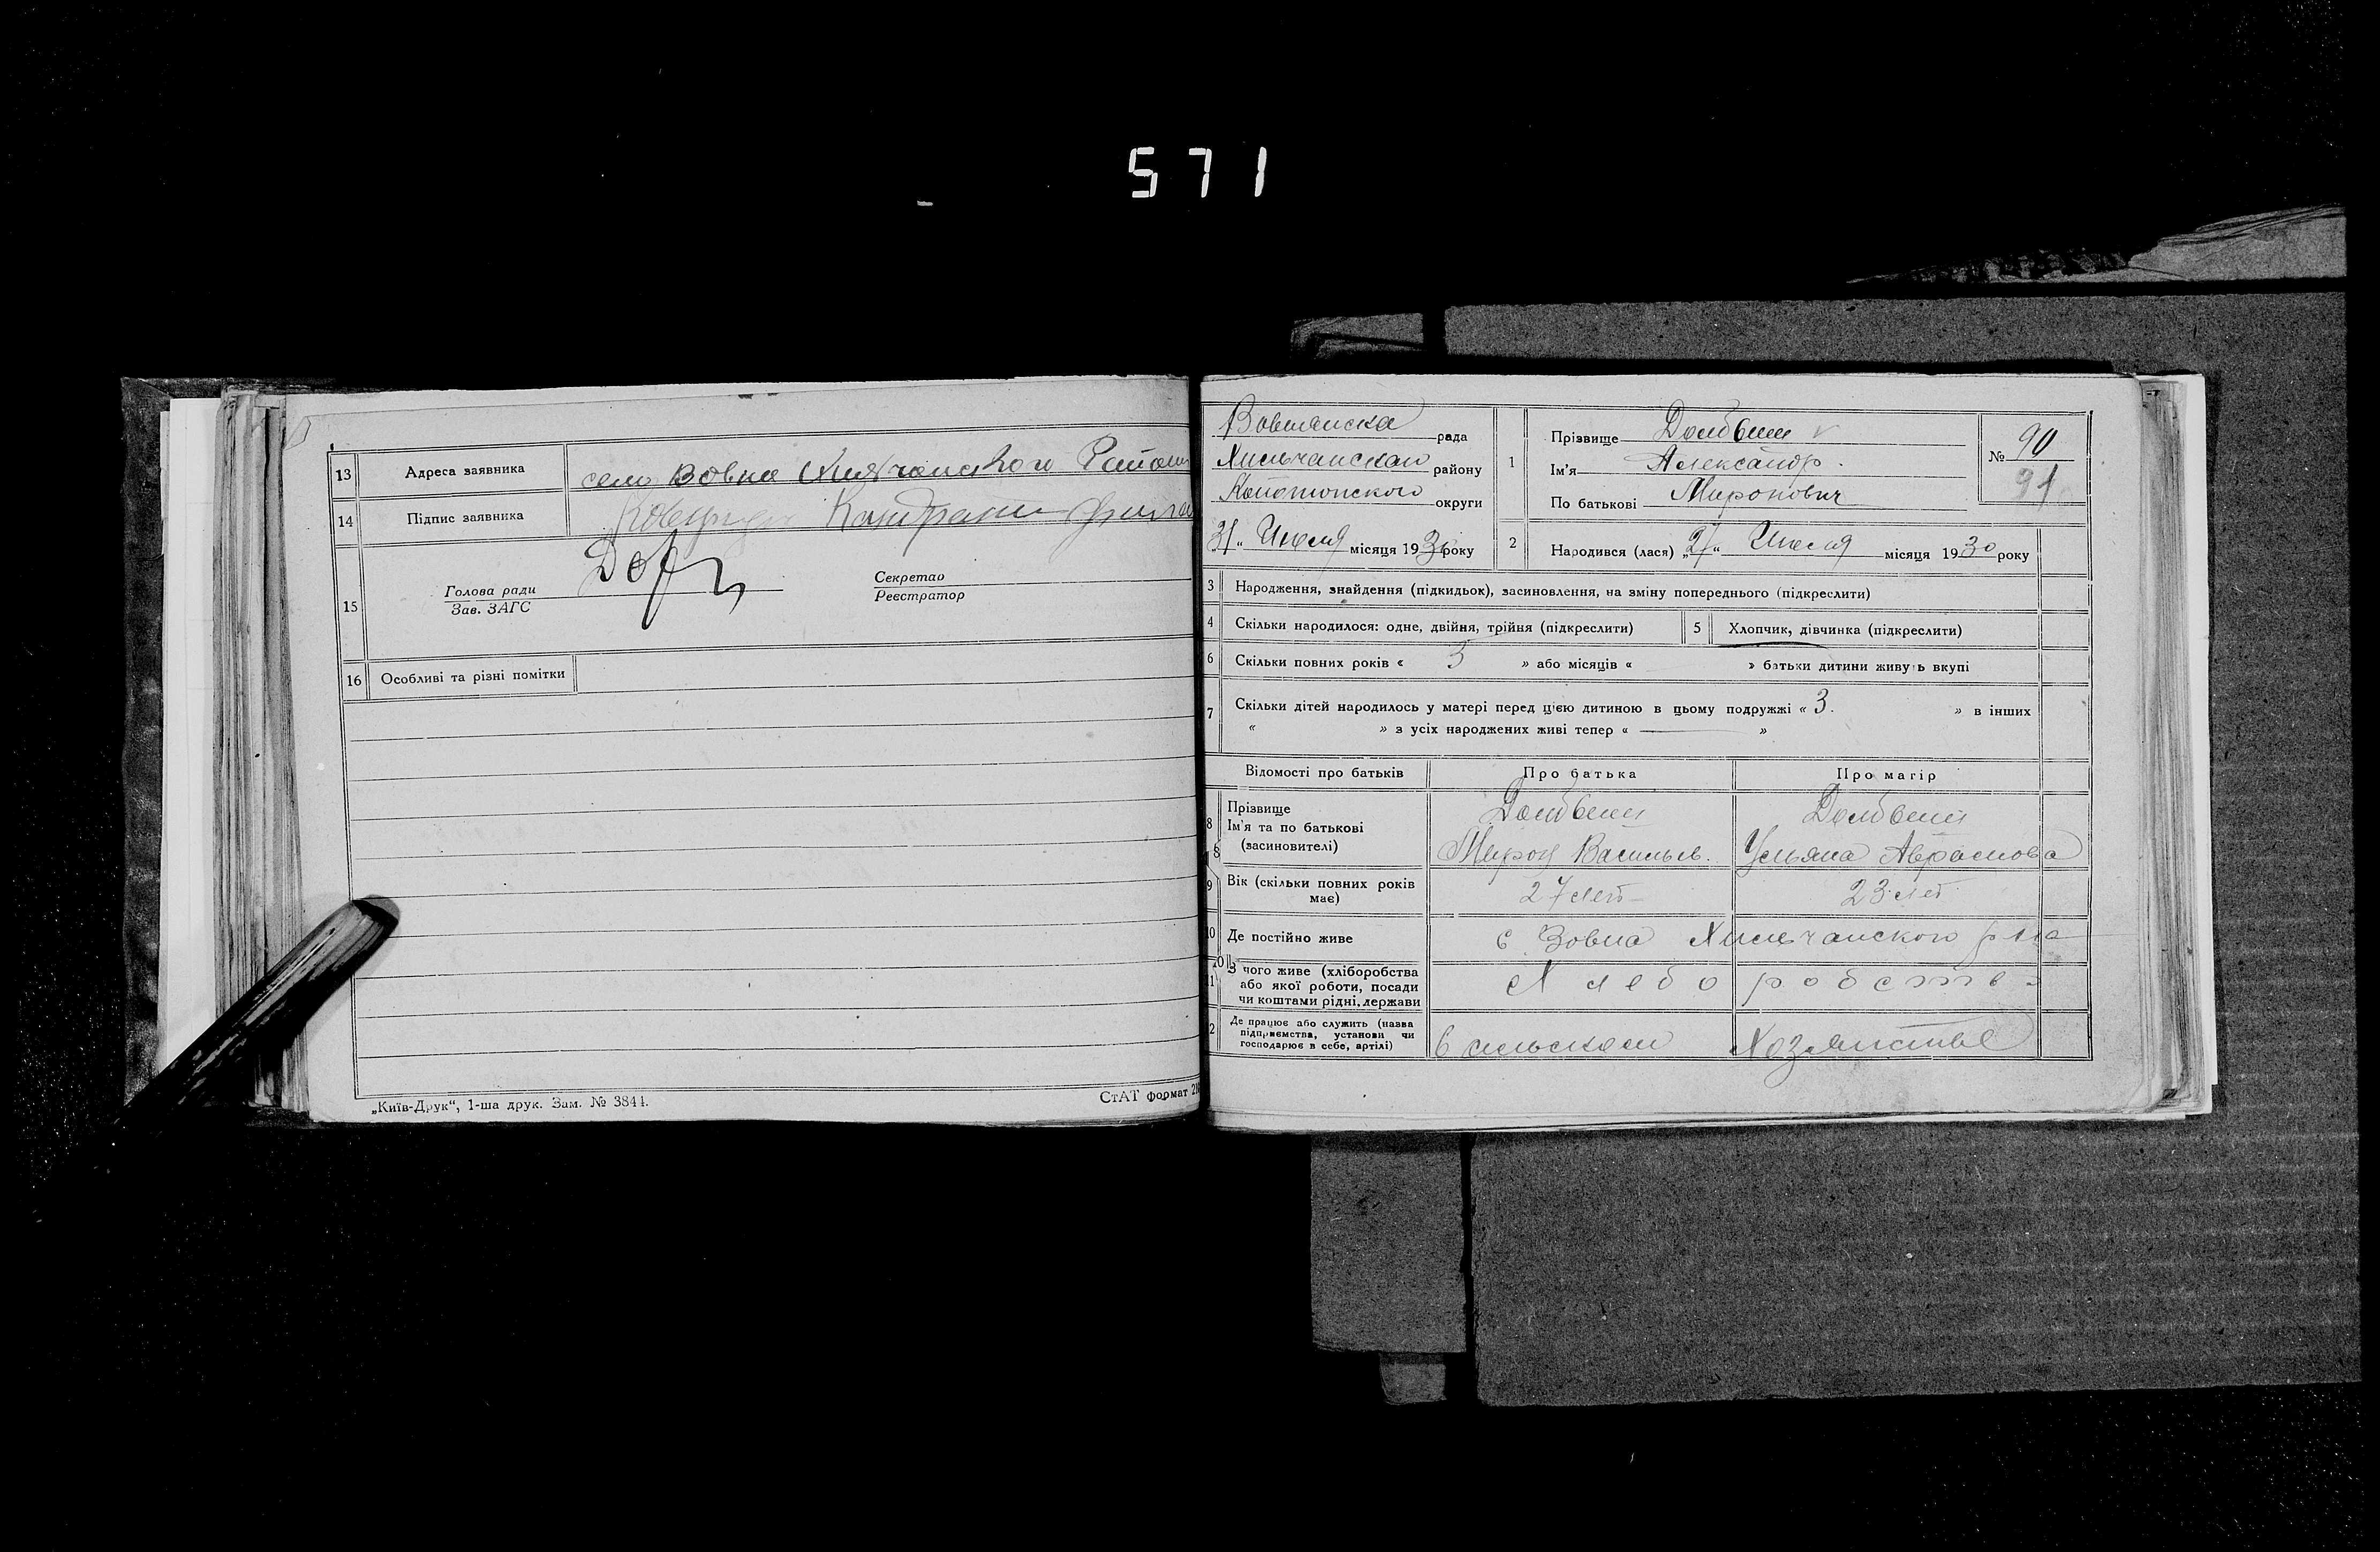 571
13 Адреса заявника село Вовна Хильчанського Району
14 Підпис заявника Кондрат
15 Голова ради
Зав. ЗАГС
Секретар
Реєстратор
16 Особливі та різні помітки
„Київ-Друк“, 1-ша друк. Зам. № 3844.
СтАТ формат
рада
Хильчанскаго району
Конотопского округи
31 „ Июля місяця 1930 року
1 Прізвище
Ім'я Александр.
По батькові Миронович
№ 90
91
2 Народився (лася) „27“ Июля місяця 1930 року
3 Народження, знайдення (підкидьок), засиновлення, на зміну попереднього (підкреслити)
4 Скільки народилося: одне, двійня, трійня (підкреслити)
5 Хлопчик, дівчинка (підкреслити)
6 Скільки повних років « 5 » або місяців « » батьки дитини живуть вкупі
7 Скільки дітей народилось у матері перед цією дитиною в цьому подружжі « 3. » в інших
« » з усіх народжених живі тепер « — »
Відомості про батьків Про батька Про матір
8 Прізвище
Ім'я та по батькові
(засиновителі)
Мирон Васильев. Ульяна Аврамова
9 Вік (скільки повних років має) 27 лет 23 лет
10 Де постійно живе с Вовна Хильчанского р-на
11 З чого живе (хліборобства або якої роботи, посади чи коштами рідні, держави Хлеборобство
12 Де працює або служить (назва підприємства, установи чи господарює в себе, артілі) В сельском Хозяистве